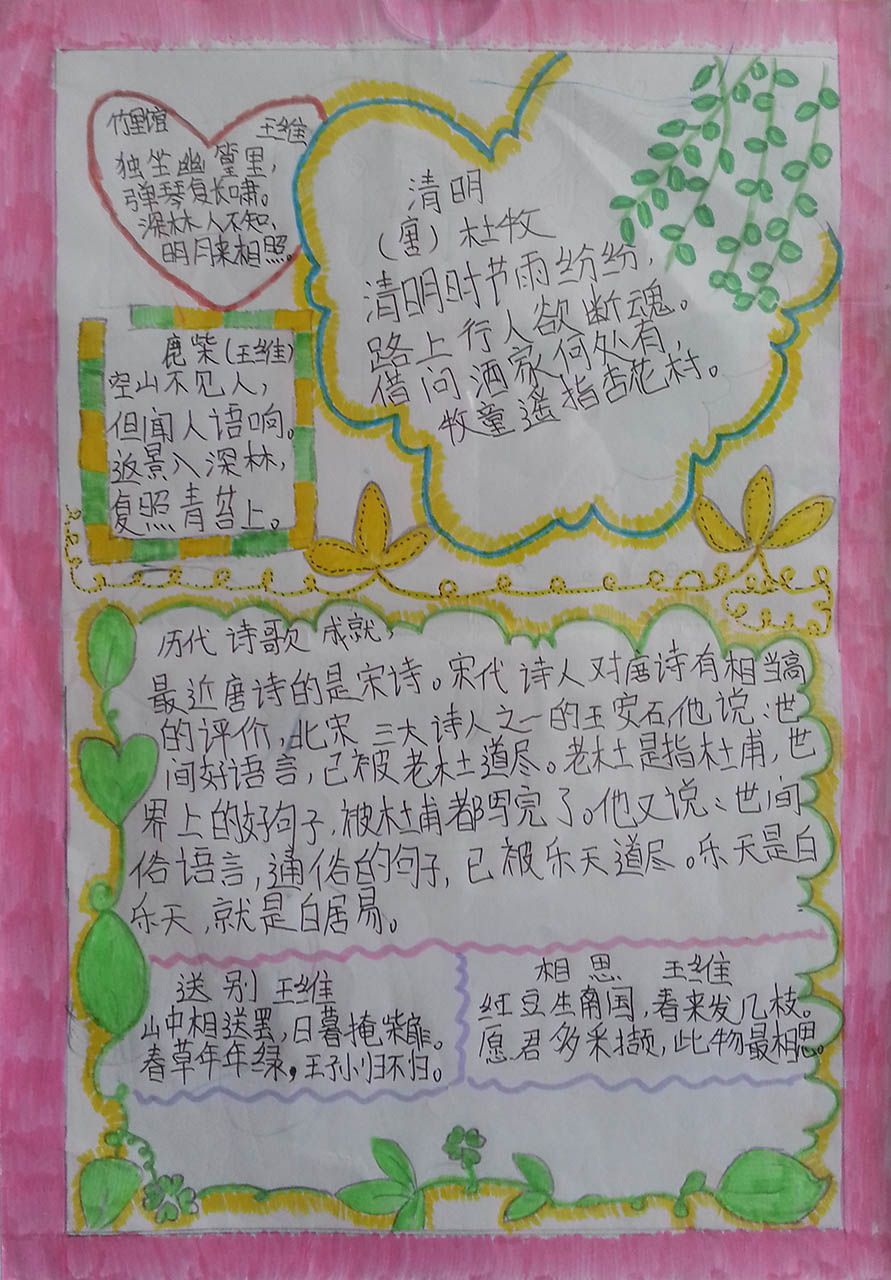 竹里馆 王维
独坐幽篁里，
弹琴复长啸。
深林人不知，
明月来相照。
清明
（唐）杜牧
清明时节雨纷纷，
路上行人欲断魂。
借问酒家何处有，
牧童遥指杏花村。
鹿柴（王维）
空山不见人，
但闻人语响。
返景入深林，
复照青苔上。
历代诗歌成就，
最近唐诗的是宋诗。宋代诗人对唐诗有相当高
的评价，北宋三大诗人之一的王安石，他说：世
间好语言，已被老杜道尽。老杜是指杜甫，世
界上的好句子，被杜甫都写完了。他又说：世间
俗语言，通俗的句子，已被乐天道尽。乐天是白
乐天，就是白居易。
送别 王维
山中相送罢，日暮掩柴扉。
春草年年绿，王孙归不归。
相思 王维
红豆生南国，春来发几枝。
愿君多采撷，此物最相思。